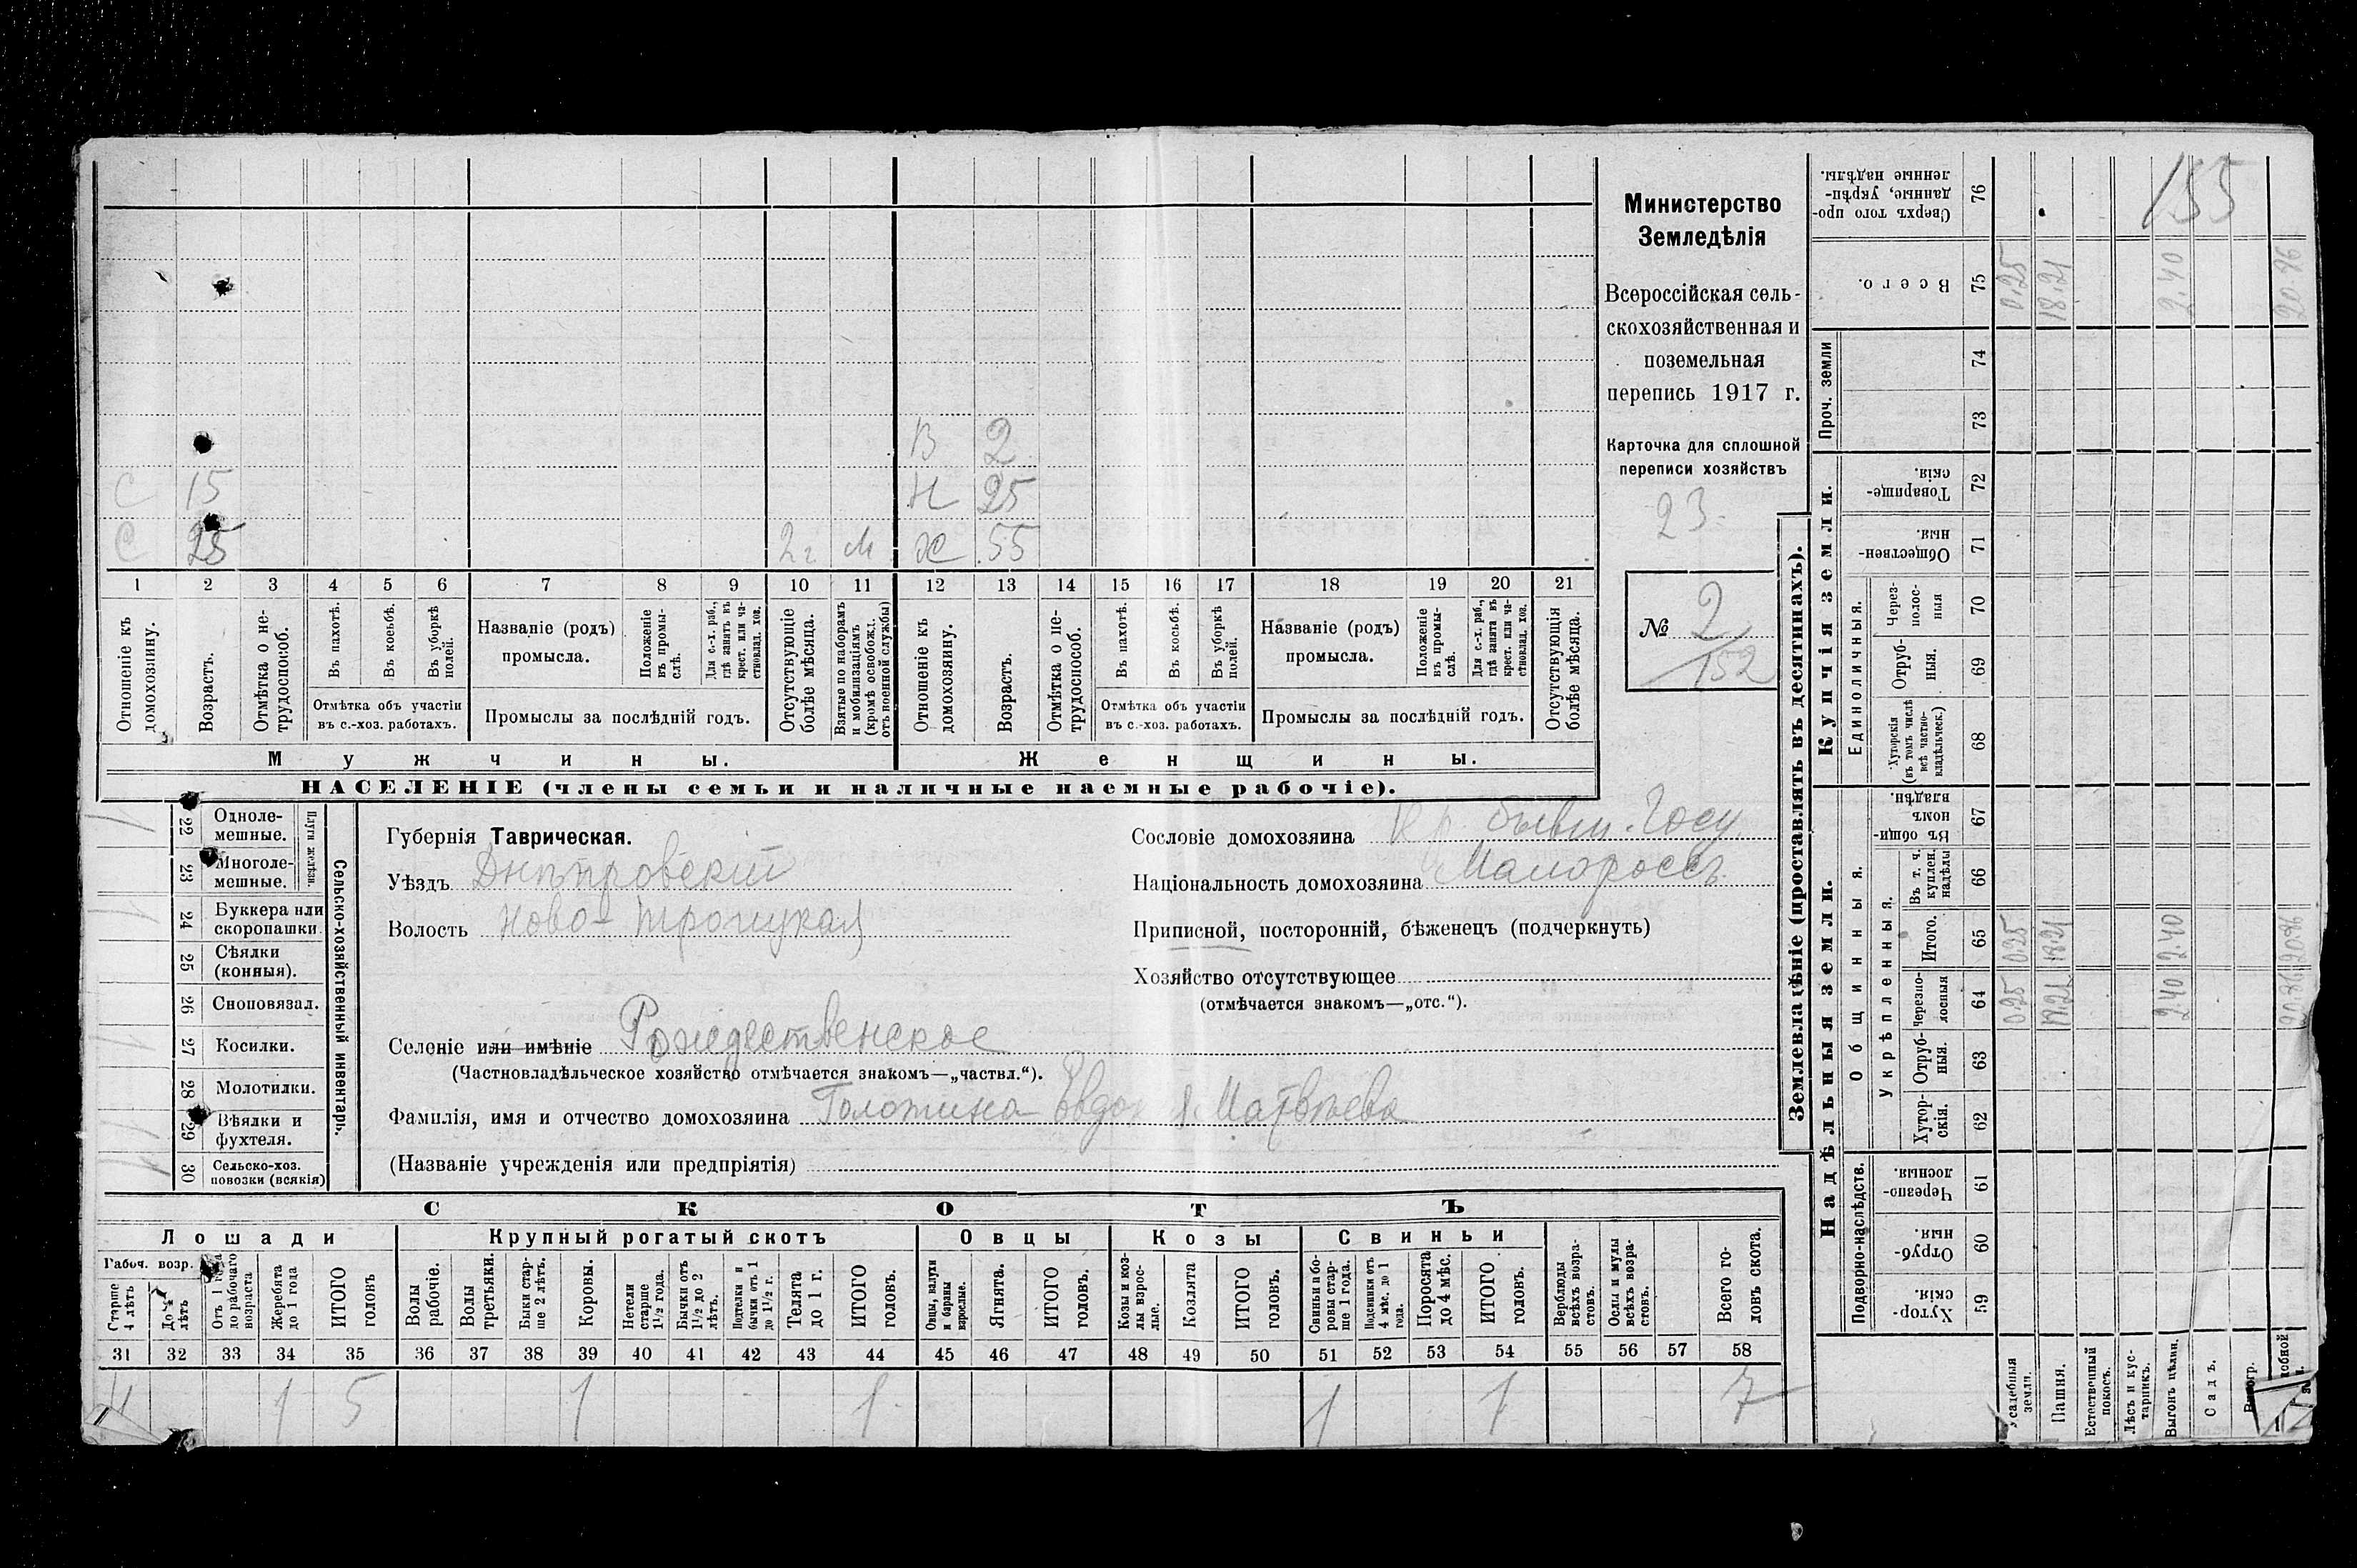 Министерство
Земледѣлія
Всероссійская сель-
скохозяйственная и
поземельная
перепись 1917 г.
Карточка для сплошной
переписи хозяйствъ
23
№ 2
152
В 2
С 15 Н 25
С 25 2 г М Ж 55
1 2 3 4 5 6 7 8 9 10 11 12 13 14 15 16 17 18 19 20 21
Отношеніе къ домохозяину.
Возрастъ.
Отмѣтка о не-трудоспособ.
Въ пахотѣ.
Въ косьбѣ.
Въ уборкѣ полей.
Отмѣтка объ участіи
въ с.-хоз. работахъ.
Названіе (родъ)
промысла.
Положеніе въ промы-слѣ.
Для с.-х. раб., гдѣ занятъ въ крест. или ча-стновлад. хоз.
Промыслы за послѣдній годъ.
Отсутствующіе болѣе мѣсяца.
Взятые по наборамъ и мобилизаціямъ (кромѣ освобожд. отъ военной службы)
Отношеніе къ домохозяину.
Возрастъ.
Отмѣтка о не-трудоспособ.
Въ пахотѣ.
Въ косьбѣ.
Въ уборкѣ полей.
Отмѣтка объ участіи
въ с.-хоз. работахъ.
Названіе (родъ)
промысла.
Положеніе въ промы-слѣ.
Для с.-х. раб., гдѣ занята въ крест. или ча-стновлад. хоз.
Промыслы за послѣдній годъ.
Отсутствующія болѣе мѣсяца.
Мужчины.
Женщины.
НАСЕЛЕНІЕ (члены семьи и наличные наемные рабочіе).
22 Одноле-мешные.
23 Многоле-мешные.
Плуги желѣзн.
24 Буккера или скоропашки.
25 Сѣялки (конныя).
26 Сноповязал.
27 Косилки.
28 Молотилки.
29 Вѣялки и фухтеля.
30 Сельско-хоз. повозки (всякія)
Сельско-хозяйственный инвентарь.
Губернія Таврическая.
Уѣздъ Днѣпровскій
Волость Ново-Троицкая
Селеніе или имѣніе Рождественское
(Частновладѣльческое хозяйство отмѣчается знакомъ—„частвл.“).
Фамилія, имя и отчество домохозяина Матвѣева
(Названіе учрежденія или предпріятія)
Сословіе домохозяина Кр. бывш. Госу
Національность домохозяина Малороссъ
Приписной, посторонній, бѣженецъ (подчеркнуть)
Хозяйство отсутствующее
(отмѣчается знакомъ—„отс.“).
СКОТЪ
Лошади
Крупный рогатый скотъ
Овцы
Козы
Свиньи
Рабоч. возр.
Старше 4 лѣтъ
До 4 лѣтъ
Отъ 1 года до рабочаго возраста
Жеребята до 1 года
ИТОГО головъ
Волы рабочіе.
Волы третьяки.
Быки стар-ше 2 лѣтъ.
Коровы.
Нетели старше 1½ года.
Бычки отъ 1½ до 2 лѣтъ.
Подтелки и бычки отъ 1 до 1½ г.
Телята до 1 г.
ИТОГО головъ.
Овцы, валухи и бараны взрослые.
Ягнята.
ИТОГО головъ.
Козы и коз-лы взрос-лые.
Козлята
ИТОГО головъ.
Свиньи и бо-ровы стар-ше 1 года.
Подсвинки отъ 4 мѣс. до 1 года.
Поросята до 4 мѣс.
ИТОГО головъ.
Верблюды всѣхъ возра-стовъ.
Ослы и мулы всѣхъ возра-стовъ.
Всего го-ловъ скота.
31 32 33 34 35 36 37 38 39 40 41 42 43 44 45 46 47 48 49 50 51 52 53 54 55 56 57 58
4 1 5 1 1 1 1 7
Землевладѣніе (проставлять въ десятинахъ).
Купчія земли.
Надѣльныя земли.
Сверхъ того про-данные, укрѣп-ленные надѣлы. 76
Всего. 75
Проч. земли 74
73
Товарище-скія. 72
Обществен-ныя. 71
Единоличныя.
Через-полос-ныя 70
Отруб-ныя. 69
Хуторскія (въ томъ числѣ всѣ частно-владѣльческ.) 68
Общинныя.
Въ общи-номъ владѣн. 67
Укрѣпленныя.
Въ т. ч. куплен. надѣлы 66
Итого. 65
Черезпо-лосныя 64
Отруб-ныя. 63
Хутор-скія. 62
Подворно-наслѣдств.
Черезпо-лосныя. 61
Отруб-ныя. 60
Хутор-скія. 59
Усадебныя земли.
Пашня.
Естественный покосъ.
Лѣсъ и кус-тарникъ.
Выгонъ цѣлин.
Садъ.
155
0.25 18.21 2.40 20.86
0.25 18.21 2.40 20.86
0.25 18.21 2.40 20.86